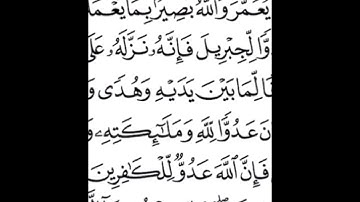 يُعَمَّرَ وَاللَّهُ بَصِيرٌ بِمَا
وًّا لِّجِبْرِيلَ فَإِنَّهُ نَزَّلَهُ عَلَىٰ
لِّمَا بَيْنَ يَدَيْهِ وَهُدًى وَ
نَ عَدُوًّا لِّلَّهِ وَمَلَائِكَتِهِ وَ
فَإِنَّ اللَّهَ عَدُوٌّ لِّلْكَافِرِينَ